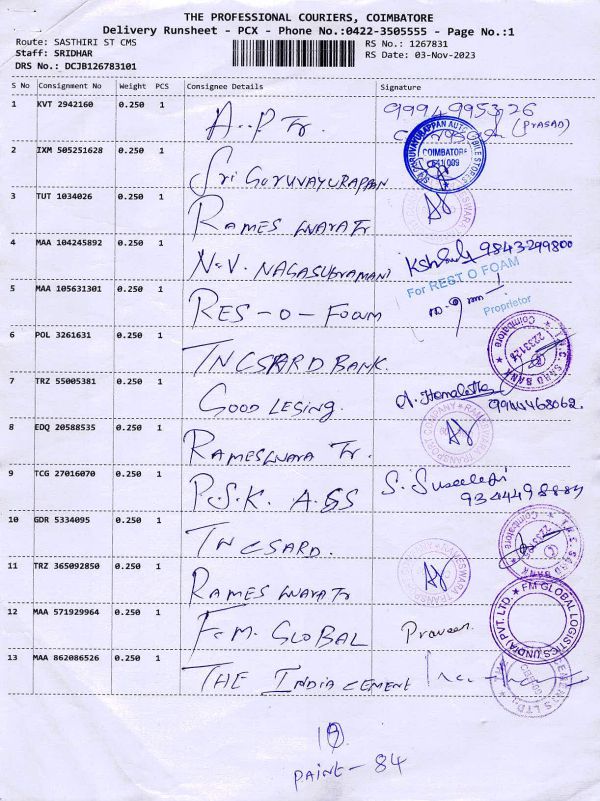 THE PROFESSIONAL COURIERS, COIMBATORE
Delivery Runsheet - PCX - Phone No.:0422-3505555 - Page No.:1
Route: SASTHIRI ST CMS
Staff: SRIDHAR
DRS No.: DCJB126783101
RS No.: 1267831
RS Date: 03-Nov-2023
S No Consignment No Weight PCS Consignee Details Signature
1 KVT 2942160 0.250 1 A..P Tr. 9994995326
(PRASAD)
2 IXM 505251628 0.250 1 Sri GURUVAYURAPPAN
GURUVAYURAPPAN AUTOMOBILE STORES
COIMBATORE
641 009
3 TUT 1034026 0.250 1 RAMESWARA Tr
4 MAA 104245892 0.250 1 N.V. NAGASUBRAMANI 9843299800
5 MAA 105631301 0.250 1 RES-O-FOAM
For REST O FOAM
Proprietor
6 POL 3261631 0.250 1 TNCSARD BANK.
Coimbatore
2233124
7 TRZ 55005381 0.250 1 GOOD LESING. A. Hemalatha
8 EDQ 20588535 0.250 1 RAMESWARA Tr.
9 TCG 27016070 0.250 1 P.S.K. ASS S. Suseela
10 GDR 5334095 0.250 1 TNCSARD.
Coimbatore
11 TRZ 365092850 0.250 1 RAMESWARA Tr
12 MAA 571929964 0.250 1 F.M. GLOBAL Praveen.
FM GLOBAL LOGISTICS (INDIA) PVT. LTD.
13 MAA 862086526 0.250 1 THE INDIA CEMENT
PAINT - 84